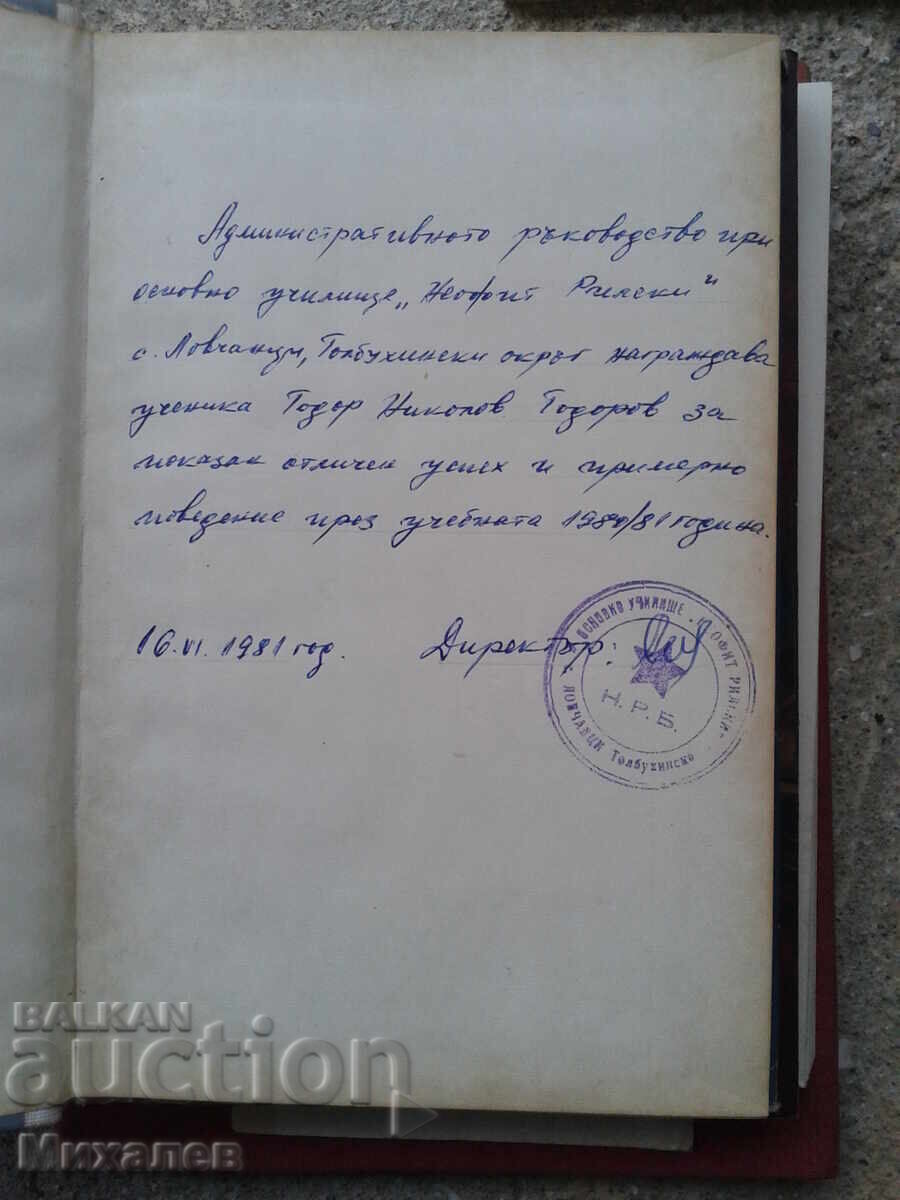 Административното ръководство при
основно училище „Неофит Рилски"
с. Ловчанци, Толбухински окръг награждава
ученика Тодор Николов Тодоров за
показан отличен успех и примерно
поведение през учебната 1980/81 година.
16.VI.1981 год. Директор:
ОСНОВНО УЧИЛИЩЕ „НЕОФИТ РИЛСКИ"
Н.Р.Б.
ЛОВЧАНЦИ Толбухинско
BALKAN
auction
Михалев